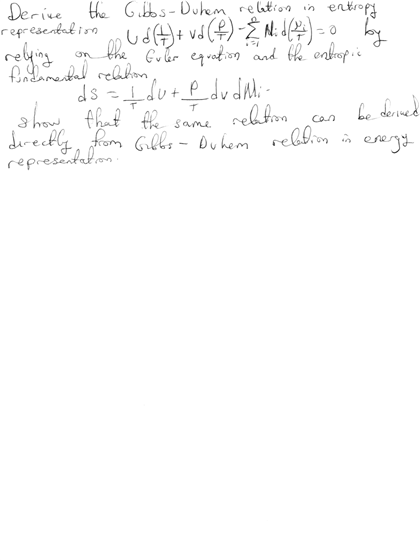 Derive the Gibbs-Duhem relation in entropy
representation U d(1/T) + V d(P/T) - ∑_{i=1}^{n} N_i d(μ_i/T) = 0 by
relying on the Euler equation and the entropic
fundamental relation
ds = 1/T du + P/T dv dMi.
show that the same relation can be derived
directly from Gibbs-Duhem relation in energy
representation.